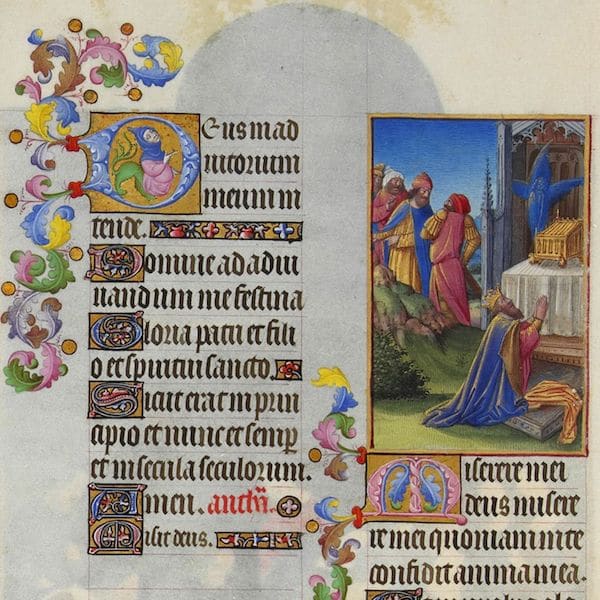 Deus in ad
iutorium
meum in
tende.
Domine ad adiu
uandum me festina
Gloria patri et fili
o et spiritui sancto.
Sicut erat in prin
cipio et nunc et semp
et in secula seculorum.
Amen. anth
Misit deus.
Miserere mei
deus misere
re mei quoniam in te
confidit anima mea.